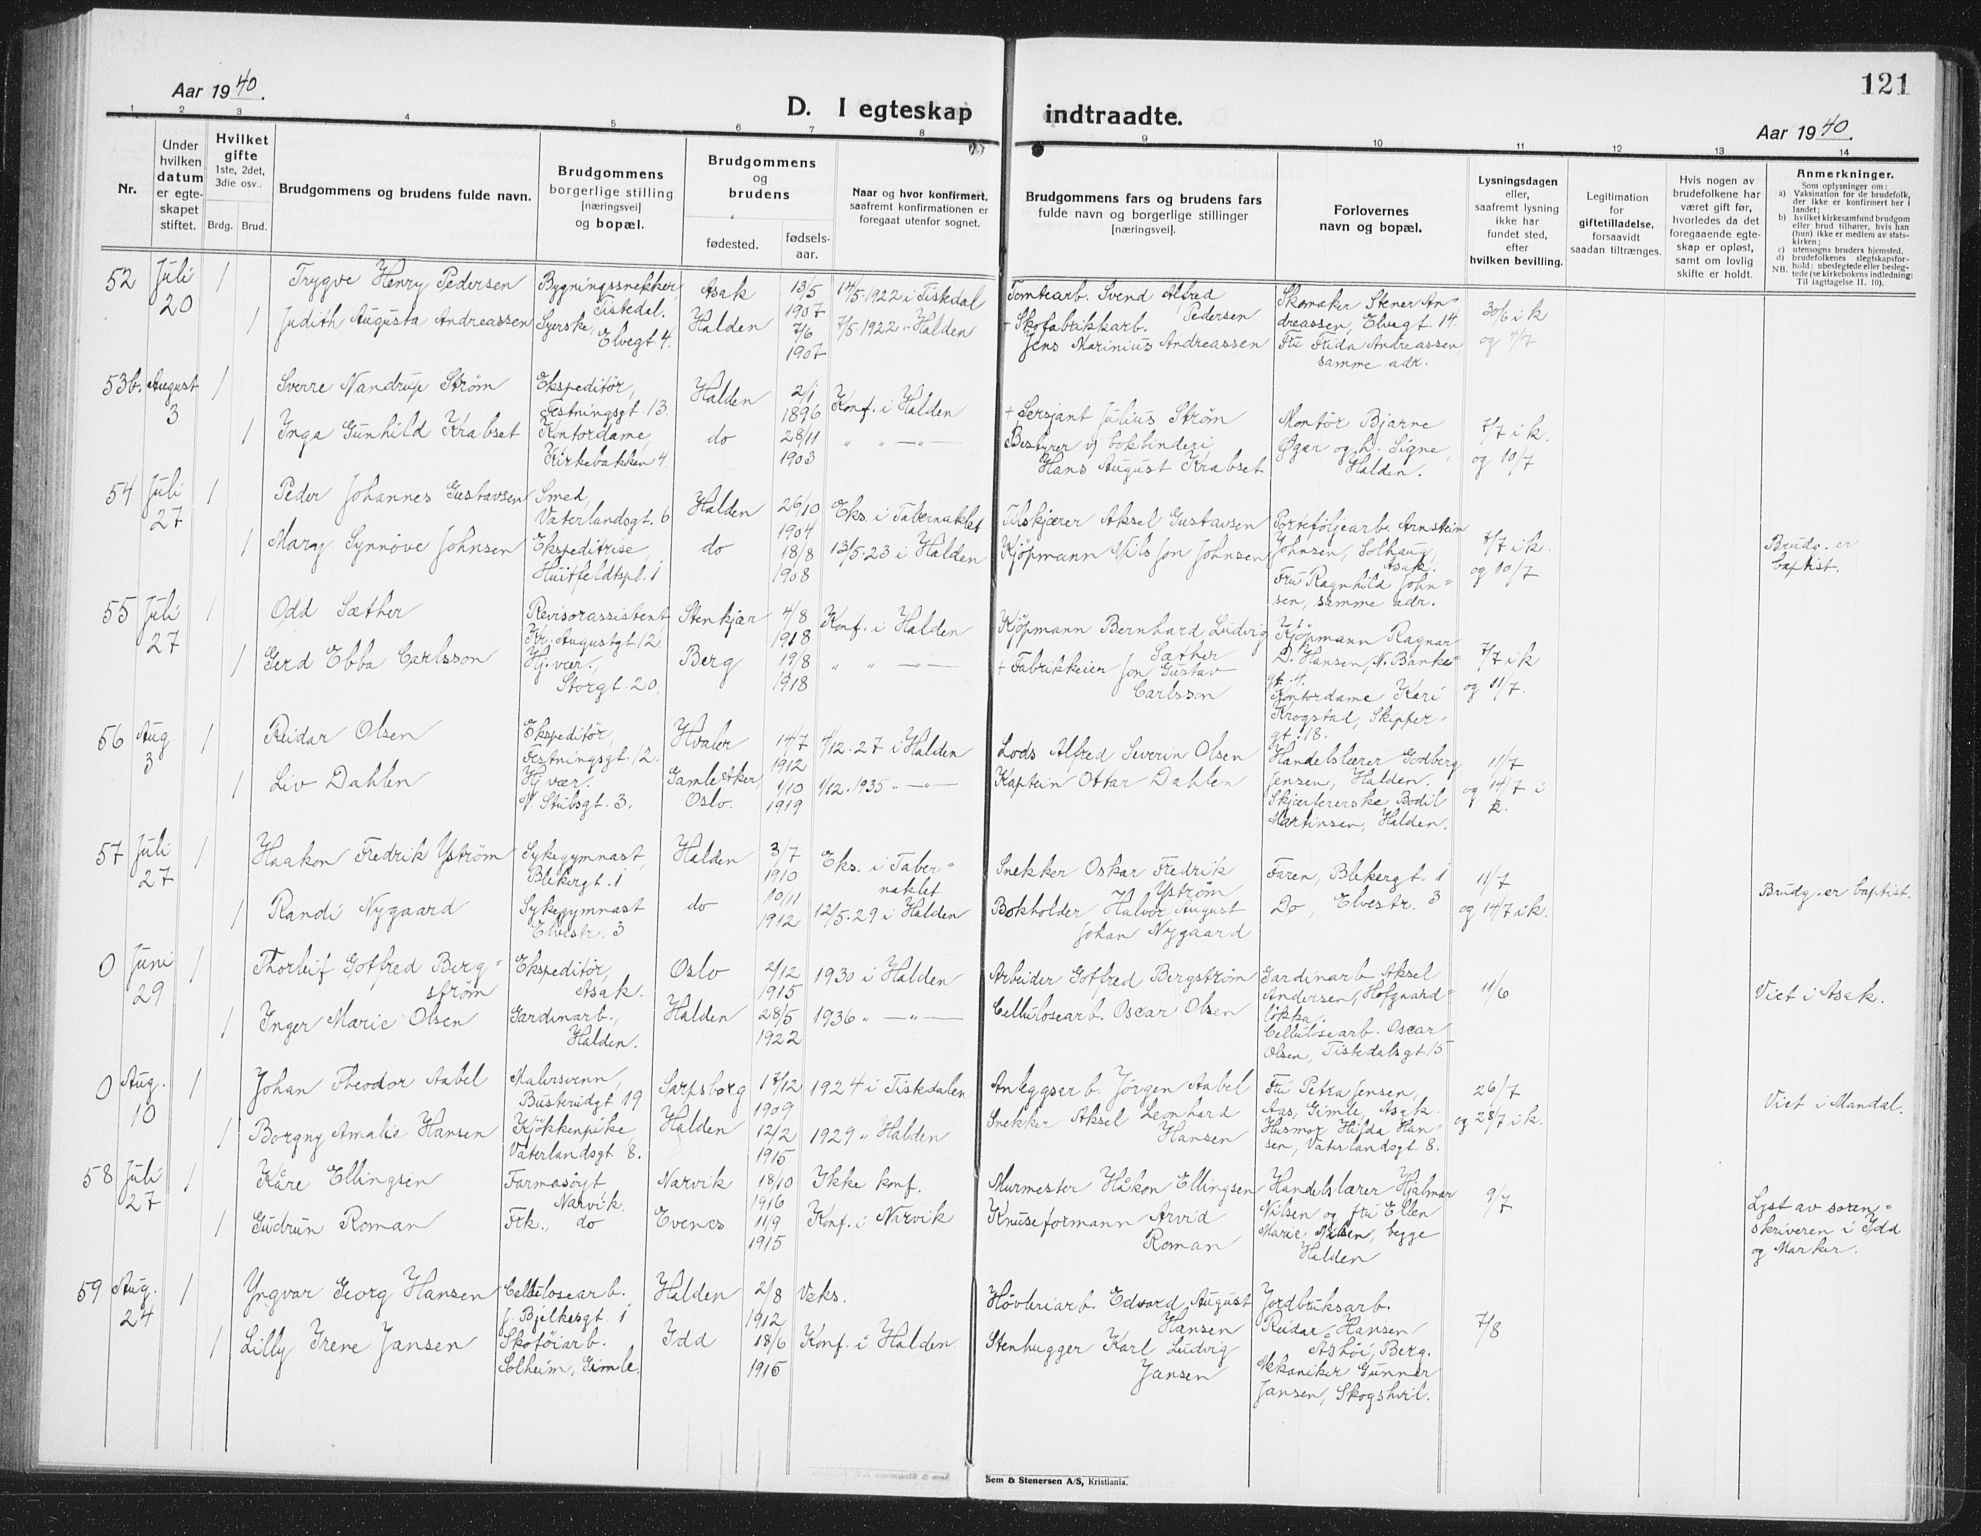 121
Aar 1940.
D. I egteskap indtraadte.
Aar 1940.
1 2 3 4 5 6 7 8 9 10 11 12 13 14
Nr.
Under hvilken datum er egte-skapet stiftet.
Hvilket gifte 1ste, 2det, 3die osv..
Brdg. Brud.
Brudgommens og brudens fulde navn.
Brudgommens borgerlige stilling [næringsvei] og bopæl.
Brudgommens og brudens
fødested. fødsels-aar.
Naar og hvor konfirmert, saafremt konfirmationen er foregaat utenfor sognet.
Brudgommens fars og brudens fars fulde navn og borgerlige stillinger [næringsvei].
Forlovernes navn og bopæl.
Lysningsdagen eller, saafremt lysning ikke har fundet sted, efter hvilken bevilling.
Legitimation for giftetilladelse, forsaavidt saadan tiltrænges.
Hvis nogen av brudefolkene har været gift før, hvorledes da det foregaaende egte-skap er opløst, samt om lovlig skifte er holdt.
Anmerkninger.
Som oplysninger om:
a) Vaksination før de brudefolk, der ikke er konfirmert her i landet;
b) hvilket kirkesamfund brudgom eller brud tilhører, hvis han (hun) ikke er medlem av stats-kirken;
c) utensogns bruders hjemsted.
d) brudefolkenes slegtskapsfor-hold; ubeslegtede eller besleg-tede (se kirkebokens indledning: Til iagttagelse II. 10).
NB.
52 Juli 20 1 Trygve Henry Pedersen Bygningssnekker, Tistedal. Asak 13/5 1907 14/5-1922 i Tistedal Tomtearb. Svend Alfred Pedersen Skomaker Stener An=dreassen, Elvegt. 14. 30/6 i k
1 Judith Augusta Andreassen Syerske, Elvegt 4. Halden 7/6 1907 7/5-1922 " Halden + Skofabrikkarb. Jens Marinius Andreassen Fru Frida Andreassen, samme adr. og 4/7.
53b. August 3 1 Sverre Nandrup Strøm Ekspeditör, Festningsgt. 13. Halden 2/1 1896 Konf. i Halden + Sersjant Julius Strøm Montör Bjarne 7/7 i k.
1 Inga Gunhild Krabset Kontordame, Kirkebakken 4. do 28/11 1903 " " —"— Bestyrer v/ bokbinderi Hans August Krabset Øgar og h. Signe, Halden. og 10/7
54 Juli 27 1 Peder Johannes Gustavsen Smed, Vaterlandsgt. 6 Halden 26/10 1904 Eks. i Tabernaklet Tilskjærer Aksel Gustavsen Porteføljearb. Arnstein Johnsen, Solhaug, Asak. 7/7 i k.
1 Mary Synnöve Johnsen Ekspeditrise, Huitfeldtspl. 1 do 18/8 1908 13/5-23 i Halden Kjöpmann Nils Jon Johnsen Fru Ragnhild John=sen, samme adr. og 10/7 Brudg. er baptist.
55 Juli 27 1 Odd Sæther Revisorassistent Kr. Augustgt 12 Stenkjær 4/8 1918 Konf. i Halden Kjöpmann Bernhard Ludvig Sæther Kjöpmann Ragnar D. Hansen, N. Banke=gt. 4. 7/7 i k
1 Gerd Ebba Carlsson Hj. vær., Storgt. 20. Berg 19/8 1918 " " —"— + Fabrikkeier Jon Gustav Carlsson Kontordame Kari Krogstad, Skipper=gt. 18. og 11/7.
56 Aug 3 1 Reidar Olsen Ekspeditör, Festningsgt. 12. Hvaler 14/7 1912 4/12-27 i Halden Lods Alfred Severin Olsen Handelslærer Godberg Jensen, Halden. 11/7
1 Liv Dahlen Hj. vær. N. Stubsgt. 3. Gamle Aker, Oslo. 1/10 1919 1/12-1935 " —"— Kaptein Ottar Dahlen Skjærfererske Bodil Martinsen, Halden. og 14/7 i k.
57 Juli 27 1 Haakon Fredrik Yström Sykegymnast, Blekergt. 1 Halden 3/7 1910 Eks. i Taber=naklet Snekker Oskar Fredrik Yström Faren, Blekergt. 1 11/7
1 Randi Nygaard Sykegymnast Elvestr. 3 do 10/11 1912 12/5-29 i Halden Bokholder Halvor August Johan Nygaard Do, Elvestr. 3 og 14/7 i k. Brudg. er baptist.
0 Juni 29 1 Thorleif Gotfred Berg=strøm Ekspeditör, Asak. Oslo 2/12 1915 1930 i Halden Arbeider Gotfred Bergstrøm Gardinarb. Aksel Andersen, Hofgaard=løkka. 11/6 Viet i Asak.
1 Inger Marie Olsen Gardinarb., Halden. Halden 28/5 1922 1936 " —"— Cellulosearb. Oscar Olsen Cellulosearb. Oscar Olsen, Tistedalsgt 15
0 Aug. 10 1 Johan Theodor Aabel Malersvenn, Busterudgt 19 Sarpsborg 17/12 1909 1924 i Tistedalen Anleggsarb. Jørgen Aabel Fru Petra Jensen, Aas, Gimle, Asak. 26/7 Viet i Mandal.
1 Borgny Amalie Hansen Kjökkenpike, Vaterlandsgt. 8. Halden 12/2 1915 1929 " Halden Snekker Aksel Leonhard Hansen Husmor Hilda Han=sen, Vaterlandsgt. 8. og 28/7 i k.
58 Juli 27 1 Kåre Ellingsen Farmasöyt Narvik. Narvik 18/10 1916 Ikke konf. Murmester Håkon Ellingsen Handelslærer Hjalmar Nilsen og fru Ellen Marie Nilsen, begge Halden 9/7 Lyst av soren=skriveren i Idd og Marker.
1 Gudrun Roman Frk., do Evenes 11/9 1915 Konf. i Narvik Knuseformann Arvid Roman
59 Aug. 24 1 Yngvar Georg Hansen Cellulosearb. J. Bjelkesgt. 1 Halden 2/8 1912 Vaks. Høvleriarb. Edvard August Hansen Jordbruksarb. Reidar Hansen, Åshöi, Berg. 7/8
1 Lilly Irene Jansen Skotöiarb. Solheim, Gimle. Idd 18/6 1915 Konf. i Halden Stenhugger Karl Ludvig Jansen Mekaniker Gunnar Jansen, Skogshvil.
Sem & Stenersen A/S, Kristiania.